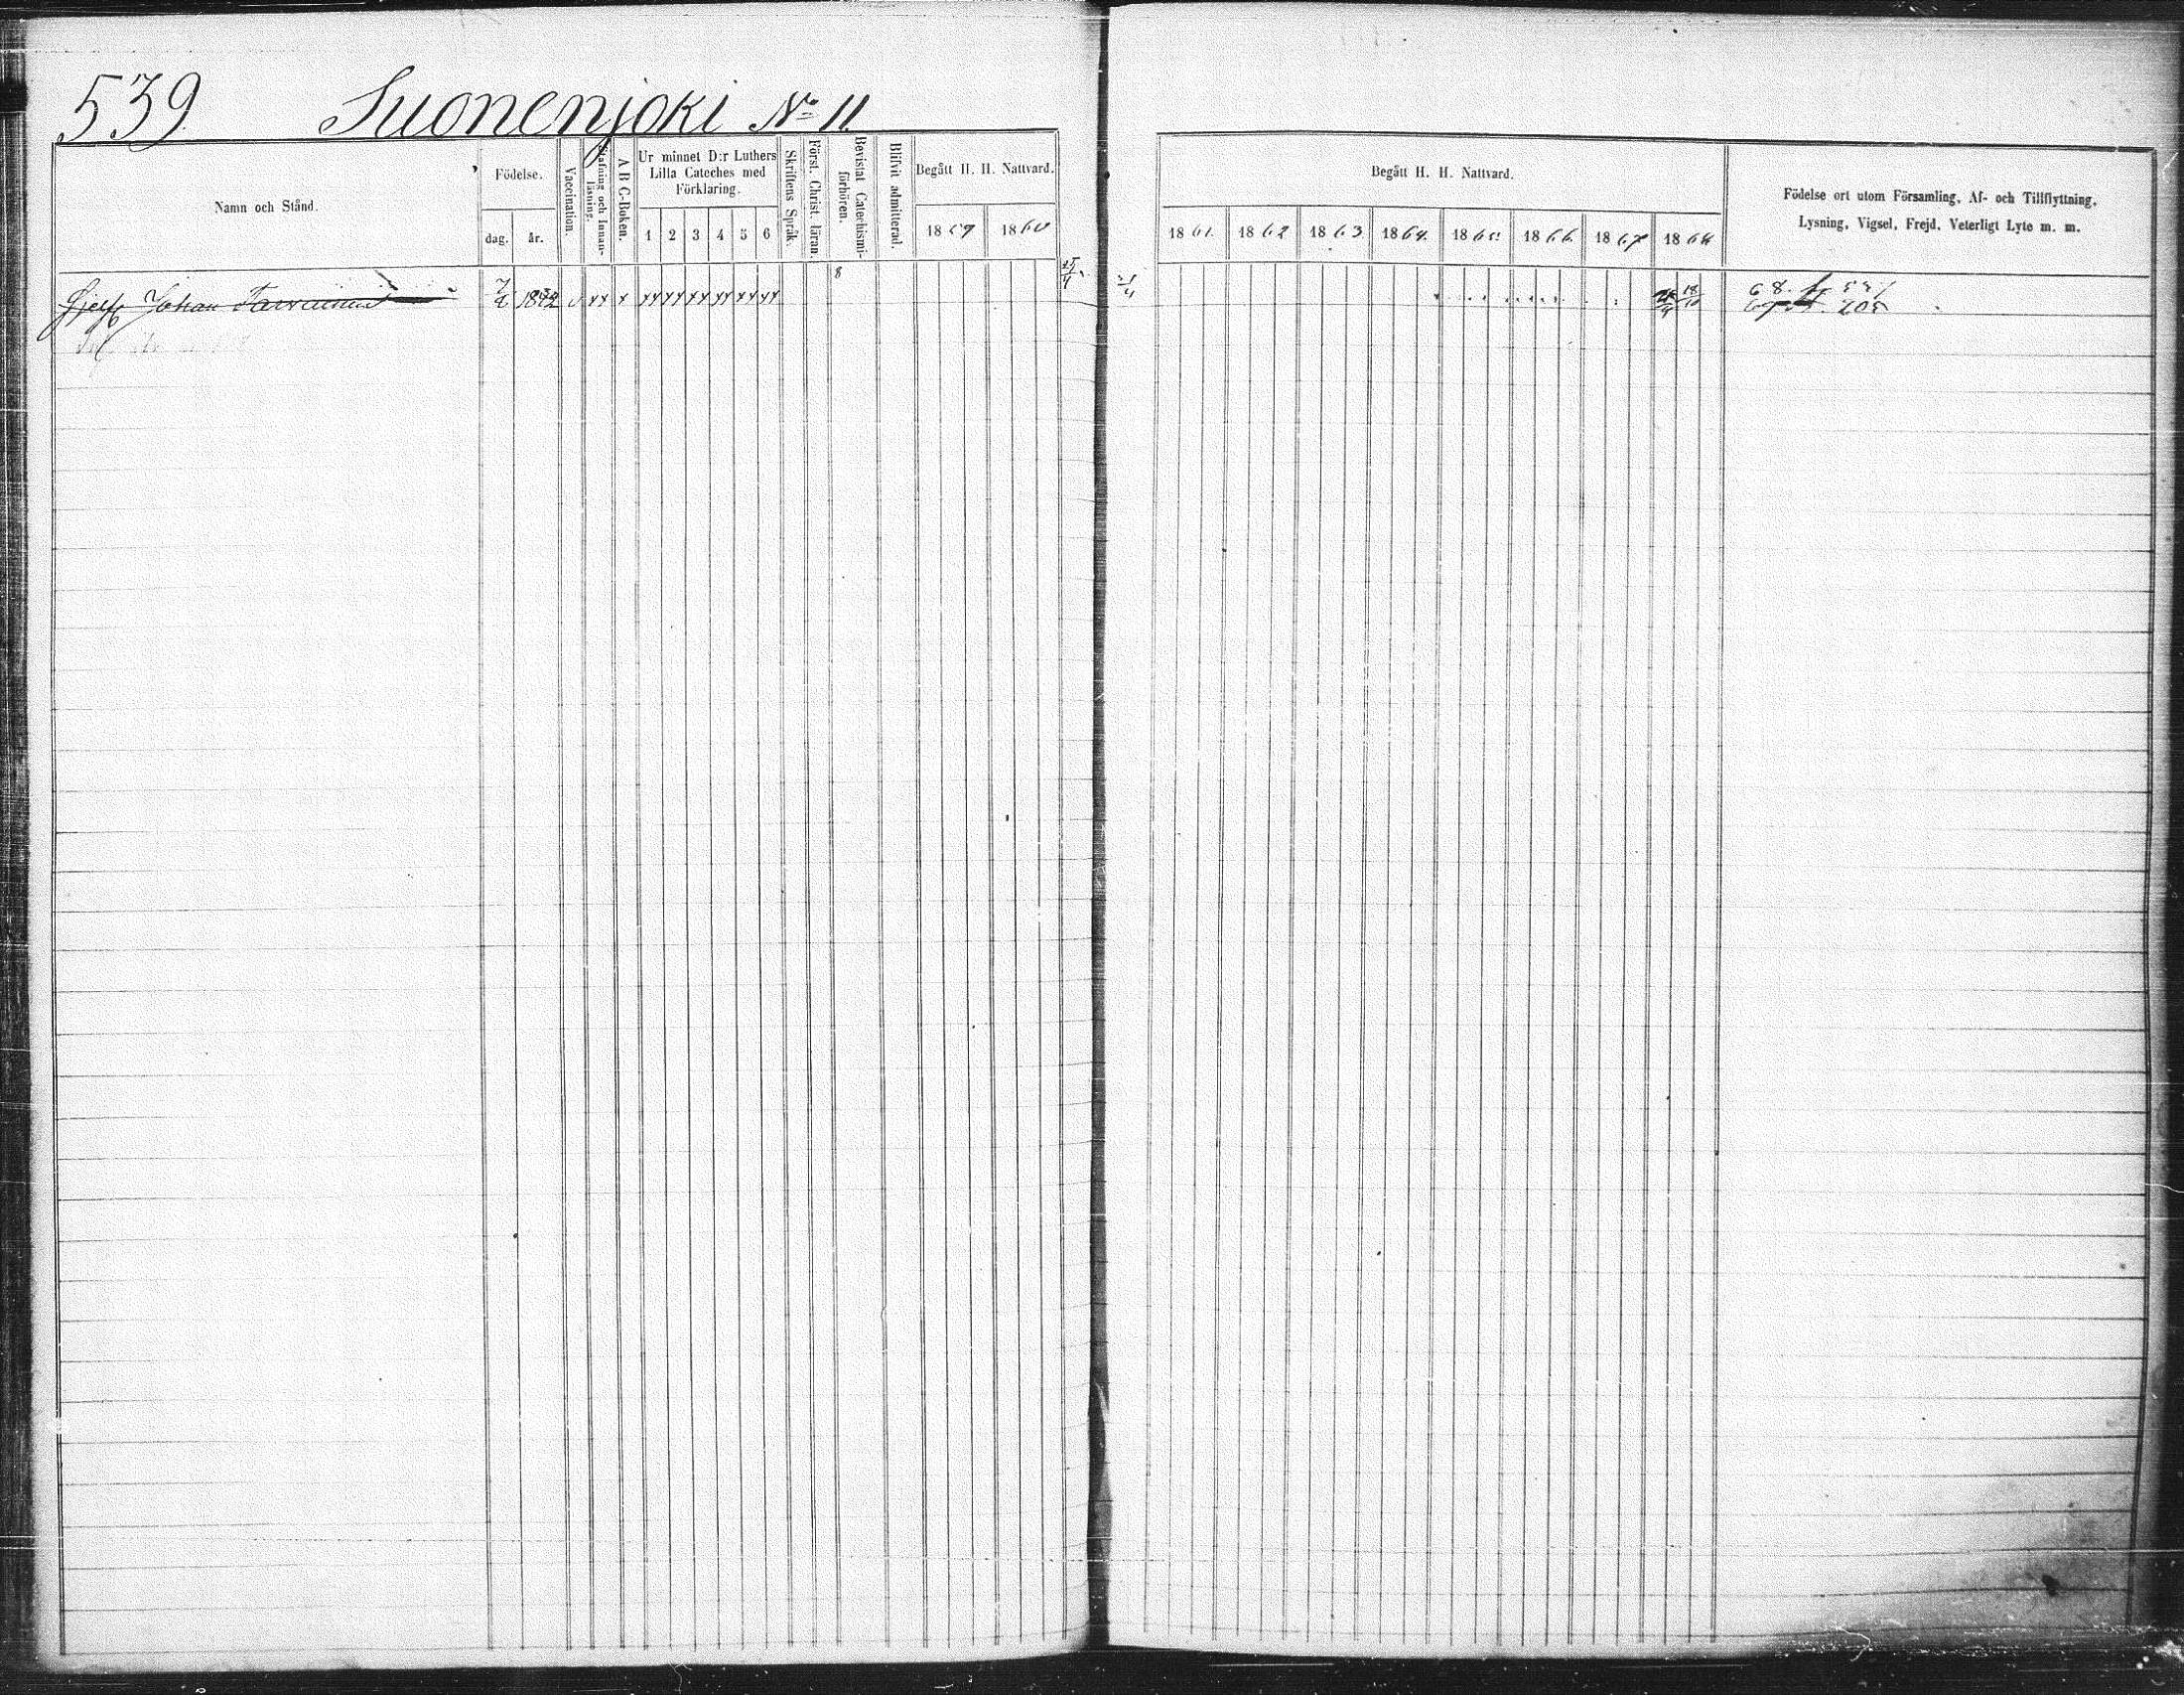 539 Suonenjoki No 11.
Namn och Stånd.
Födelse.
dag. år.
Vaccination.
Stafning och Innanläsning.
A B C-Boken.
Ur minnet D:r Luthers
Lilla Cateches med
Förklaring.
1 2 3 4 5 6
Skriftens Språk.
Först. Christ. läran.
Bevistat Catechismi-
förhören.
Blifvit admitterad.
Begått H. H. Nattvard.
1859 1860
Begått H. H. Nattvard.
1861. 1862 1863 1864. 1865. 1866. 1867 1868
Födelse ort utom Församling, Af- och Tillflyttning,
Lysning, Vigsel, Frejd, Veterligt Lyte m. m.
Johan
8